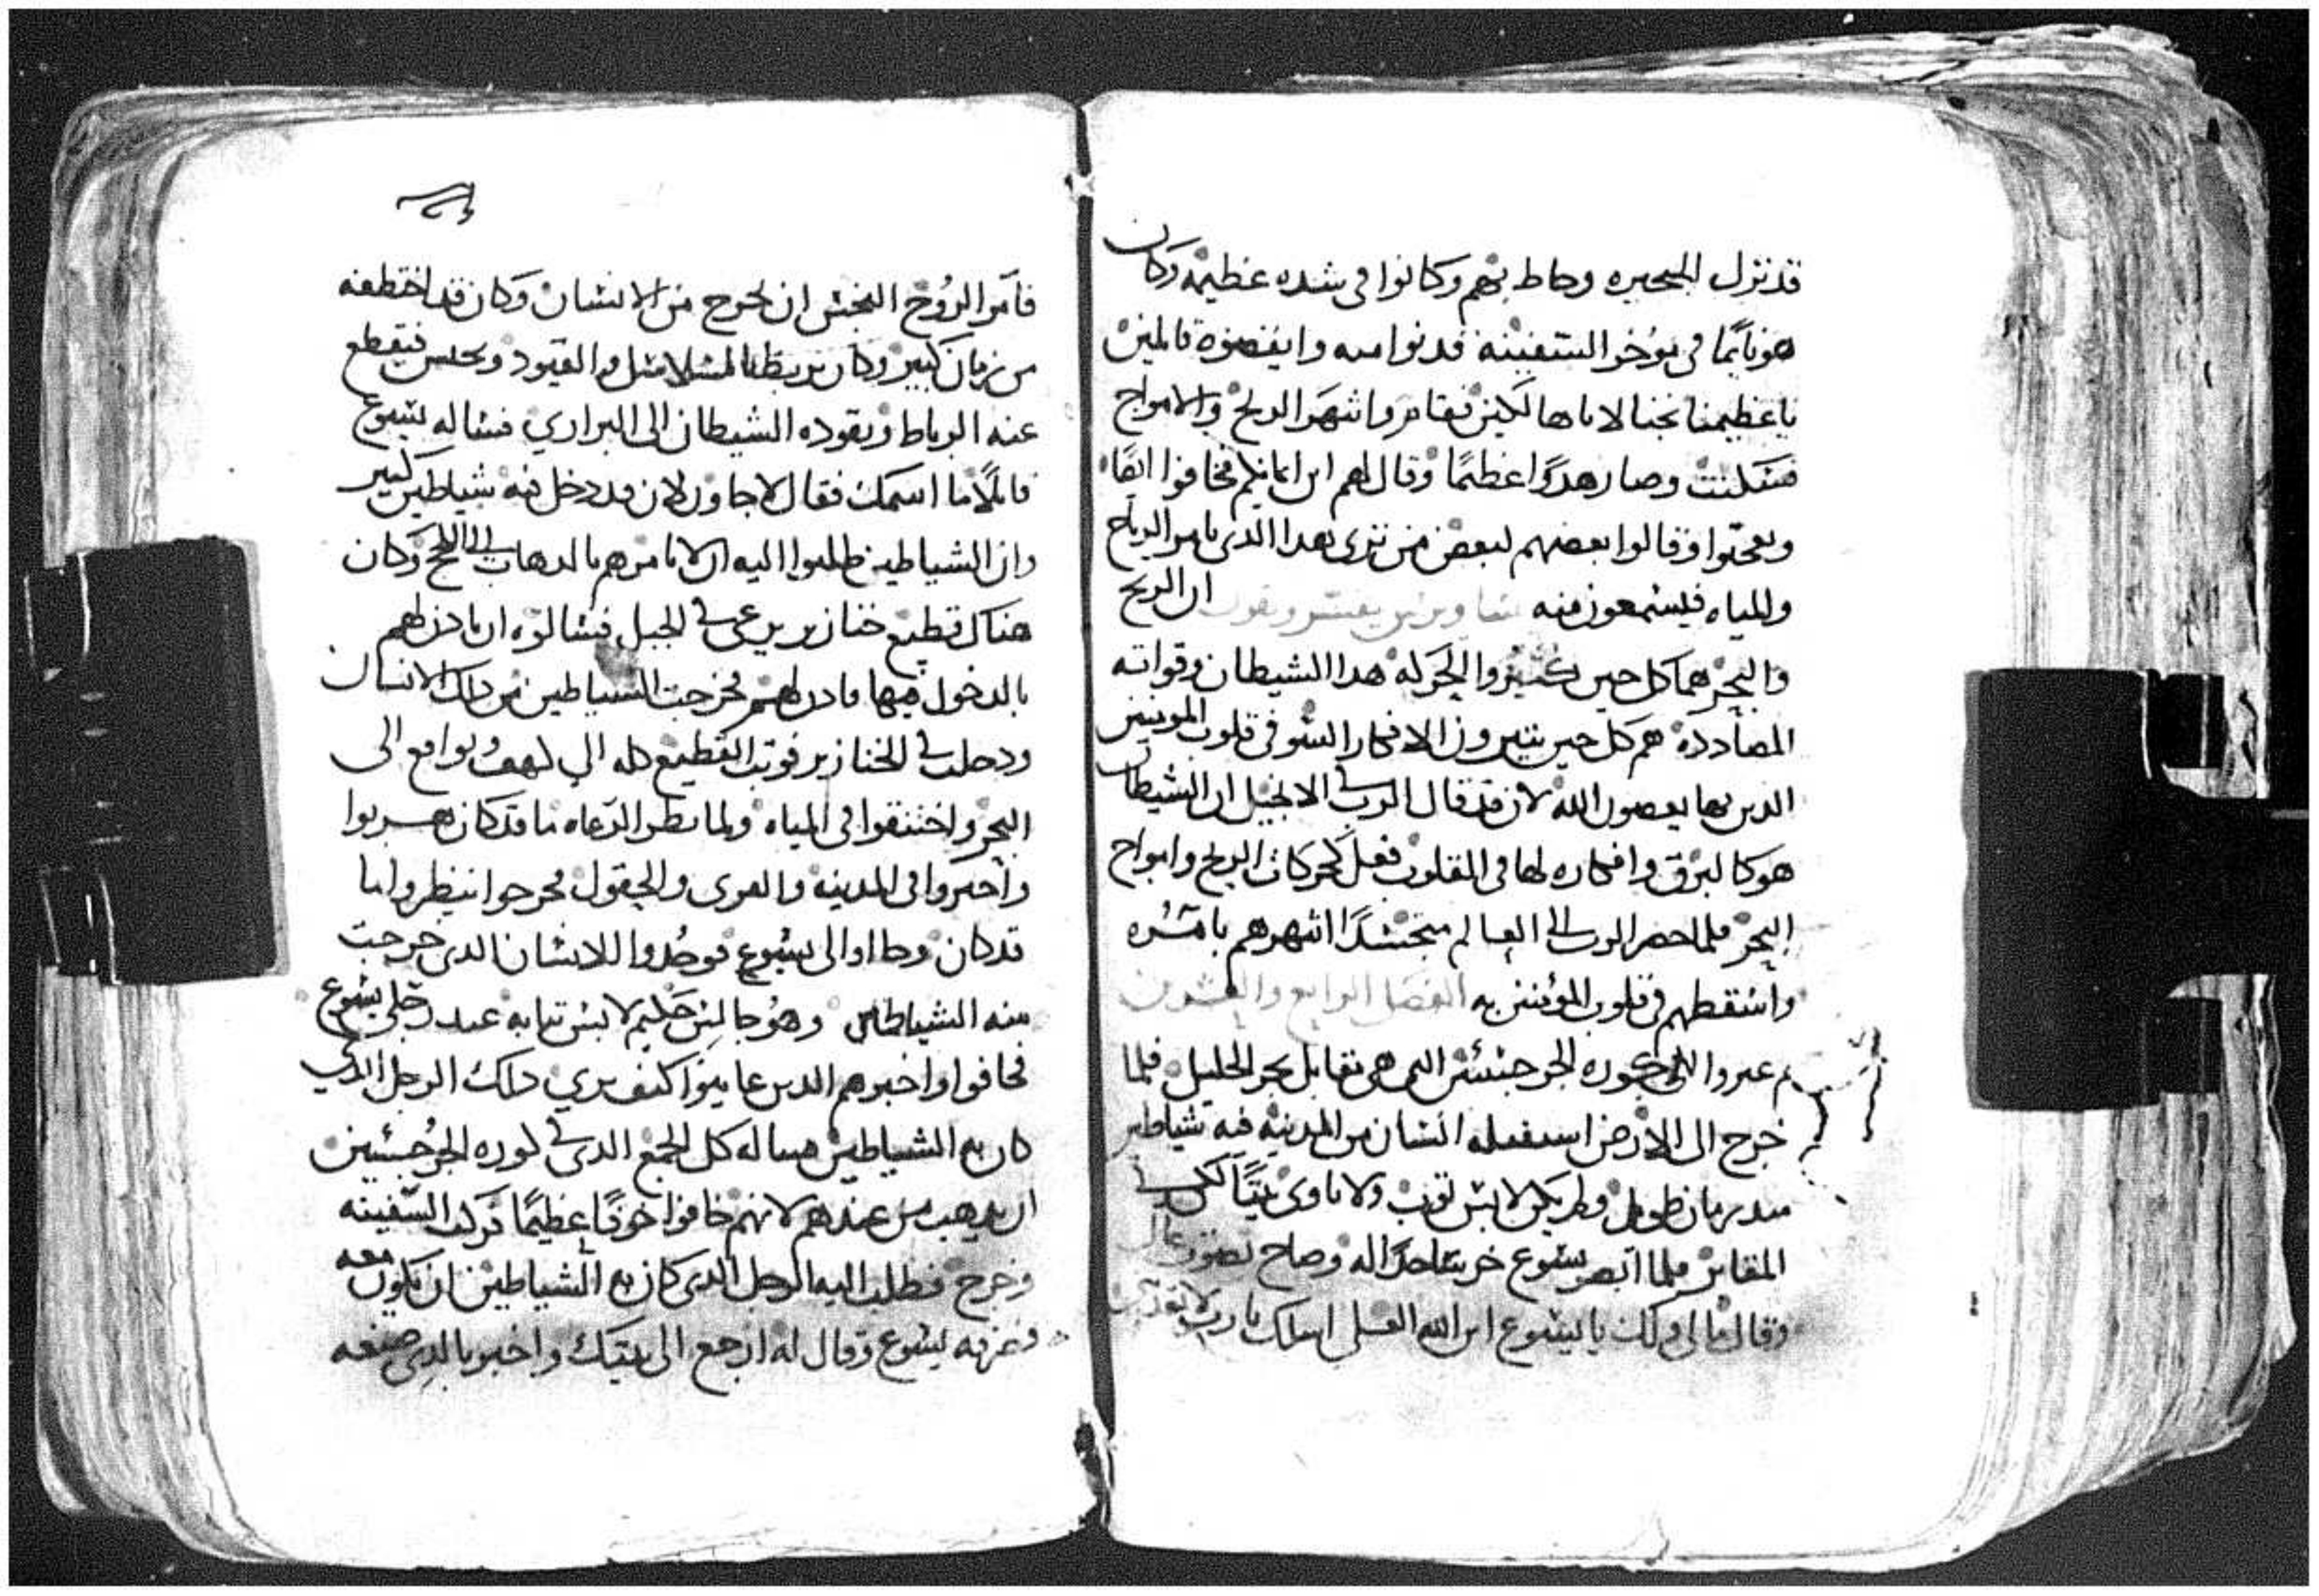 قد نزل البحيره وحاط بهم وكانوا فى شده عظيمه وكان
هو نايمًا فى موخر السفينه فدنوا منه وايقضوه قايلين
يا عظيمنا نجنا لانا هالكين فقام وانتهر الريح والامواج
فسكنت وصار هدوًا عظيمًا وقال لهم اين ايمانكم فخافوا ايضًا
وتعجبوا وقالوا بعضهم لبعض من ترى هدا الدى يامر الرياح
والمياه فيسمعون منه يفسر ويقول ان الريح
والبحر هما كل حين كثير والحركه هدا الشيطان وقواته
المضاددة هم كل حين يثيرون الافكار السو فى قلوب المومنين
الدين بها يعصون الله لان قد قال الرب فى الانجيل ان الشيطان
هو كالبرق وافكاره لها فى القلوب فعل كحركات الريح وامواج
البحر فلما حضر الرب الى العالم متجسدًا انتهرهم بامره
واسقطهم من قلوب المؤمنين به الفصل الرابع والعشرون
ثم عبروا الى كوره الجرجسين التى هى تقابل بحر الجليل فلما
خرج الى الارض استقبله انسان من المدينه فيه شياطين
مند زمان طويل ولم يكن لابس توب ولا ياوى بيتًا لكن فى
المقابر فلما ابصر يسوع خر ساجدًا له وصاح بصوت عال
وقال ما لى ولك يا يسوع ابن الله العلى اسلك يا رب لا تعذبنى
فامر الروح النجس ان يخرج من الانسان وكان قد اختطفه
من زمان كبير وكان يربط بالسلاسل والقيود ويحبس فيقطع
عنه الرباط ويقوده الشيطان الى البراري فساله يسوع
قايلًا ما اسمك فقال لاجاون لان قد دخل فيه شياطين كثير
وان الشياطين طلبوا اليه ان لا يامرهم بالدهاب الى اللج وكان
هناك قطيع خنازير يرعى فى الجبل فسالوه ان يادن لهم
بالدخول فيها فادن لهم فخرجت الشياطين من دلك الانسان
ودخلت فى الخنازير فوتب القطيع كله الى كهف وتواقع الى
البحر واختنقوا فى المياه ولما نظر الرعاه ما قد كان هربوا
واخبروا فى المدينه والقرى والحقول فخرجوا لينظروا ما
قد كان وجااوا الى يسوع فوجدوا الانسان الدى خرجت
منه الشياطين وهو جالس حليم لابس تيابه عند رجلى يسوع
فخافوا واخبرهم الدين عاينوا كيف بري دلك الرجل الدي
كان به الشياطين فساله كل الجمع الدى فى كوره الجرجسين
ان يدهب من عندهم لانهم خافوا خوفًا عظيمًا فركب السفينه
وخرج فطلب اليه الرجل الدى كان به الشياطين ان يكون معه
وصرفه يسوع وقال له ارجع الى بيتك واخبر بالدي صنعه